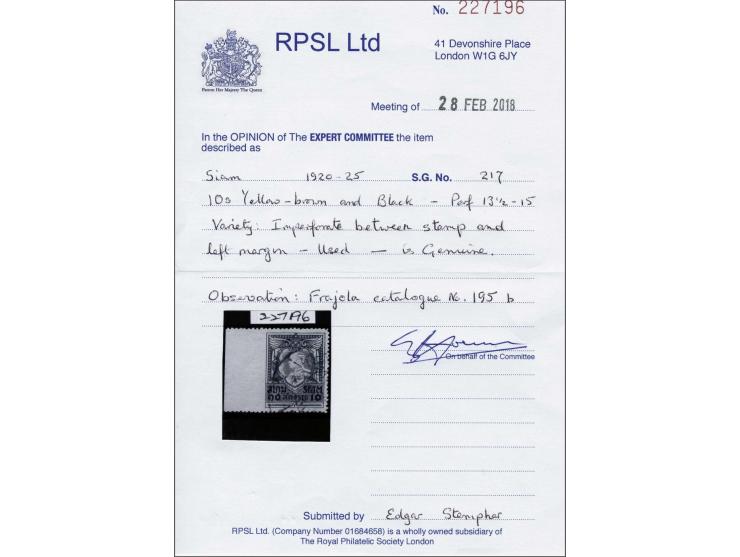 No. 227196
RPSL Ltd
41 Devonshire Place
London W1G 6JY
Patron Her Majesty The Queen
Meeting of 28 FEB 2018
In the OPINION of The EXPERT COMMITTEE the item
described as
Siam 1920-25 S.G. No. 217
10s Yellow-brown and Black - Perf 13½-15
Variety: Imperforate between stamp and
left margin - Used - is Genuine.
Observation: Frajola catalogue No. 195 b
227196
On behalf of the Committee
๑๐ สตางค์ 10
Submitted by Edgar Stempher
RPSL Ltd. (Company Number 01684658) is a wholly owned subsidiary of
The Royal Philatelic Society London